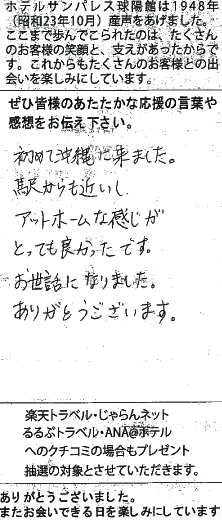 ホテルサンパレス球陽館は1948年
(昭和23年10月)産声をあげました。
ここまで歩んでこられたのは、たくさん
のお客様の笑顔と、支えがあったからで
す。これからもたくさんのお客様との出
会いを楽しみにしています。
ぜひ皆様のあたたかな応援の言葉や
感想をお伝え下さい。
初めて沖縄に来ました。
駅からも近いし
アットホームな感じが
とっても良かったです。
お世話になりました。
ありがとうございます。
楽天トラベル・じゃらんネット
るるぶトラベル・ANA@ホテル
へのクチコミの場合もプレゼント
抽選の対象とさせていただきます。
ありがとうございました。
またお会いできる日を楽しみにしています